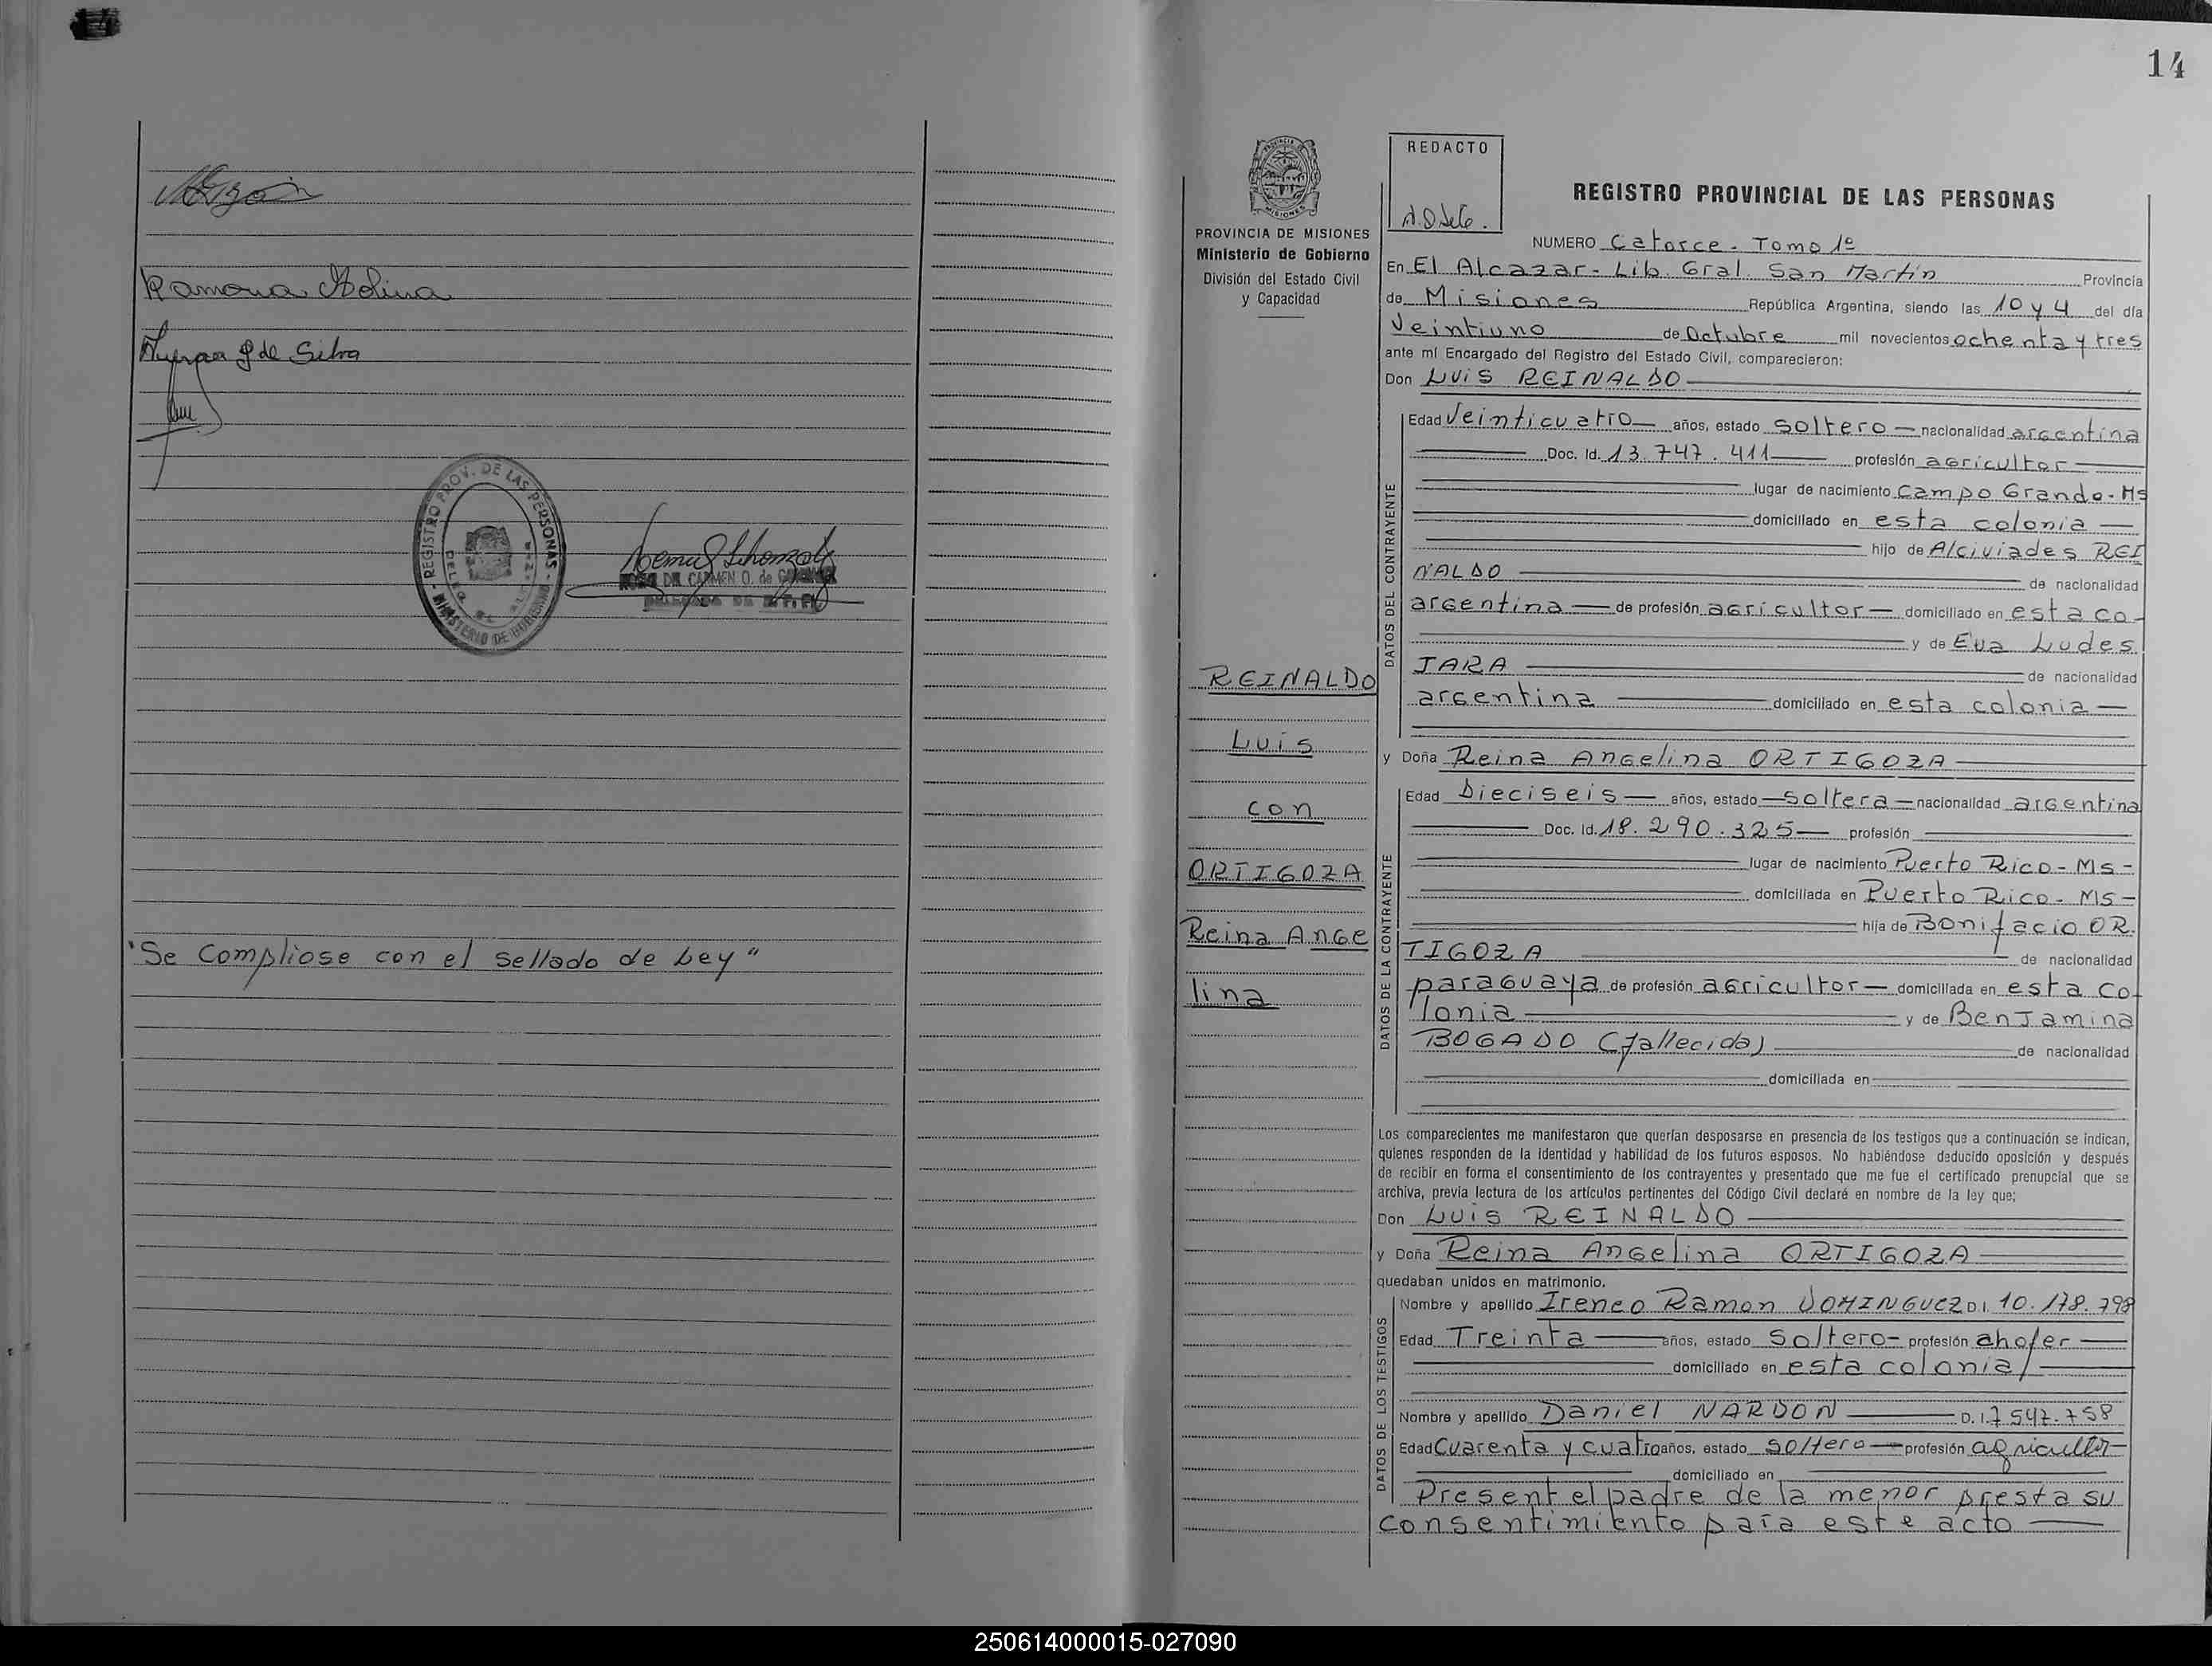 14
Ramona Molina
de Silva
REGISTRO PROV. DE LAS PERSONAS
MINISTERIO DE GOBIERNO
DEL CARMEN O. de
DELEGADA DE
"Se Compliose con el sellado de Ley"
14
PROVINCIA DE MISIONES
Ministerio de Gobierno
División del Estado Civil
y Capacidad
REINALDO
Luis
con
ORTIGOZA
Reina Ange
lina
REDACTO
REGISTRO PROVINCIAL DE LAS PERSONAS
NUMERO Catorce - Tomo 1º
En El Alcazar - Lib. Gral. San Martin Provincia
de Misiones República Argentina, siendo las 10 y 4 del día
Veintiuno de Octubre mil novecientos ochenta y tres
ante mí Encargado del Registro del Estado Civil, comparecieron:
Don Luis REINALDO
DATOS DEL CONTRAYENTE
Edad Veinticuatro años, estado Soltero nacionalidad argentina
Doc. Id. 13.747.411 profesión agricultor
lugar de nacimiento Campo Grande - Ms
domiciliado en esta colonia
hijo de Alciviades REI
NALDO de nacionalidad
argentina de profesión agricultor domiciliado en esta co-
y de Eva Ludes
JARA de nacionalidad
argentina domiciliado en esta colonia
y Doña Reina Angelina ORTIGOZA
DATOS DE LA CONTRAYENTE
Edad Dieciseis años, estado Soltera nacionalidad argentina
Doc. Id. 18.290.325 profesión
lugar de nacimiento Puerto Rico - Ms -
domiciliada en Puerto Rico - Ms -
hija de Bonifacio OR.
TIGOZA de nacionalidad
paraguaya de profesión agricultor domiciliada en esta co
lonia y de Benjamina
BOGADO (fallecida) de nacionalidad
domiciliada en
Los comparecientes me manifestaron que querían desposarse en presencia de los testigos que a continuación se indican,
quienes responden de la identidad y habilidad de los futuros esposos. No habiéndose deducido oposición y después
de recibir en forma el consentimiento de los contrayentes y presentado que me fue el certificado prenupcial que se
archiva, previa lectura de los artículos pertinentes del Código Civil declaré en nombre de la ley que;
Don Luis REINALDO
y Doña Reina Angelina ORTIGOZA
quedaban unidos en matrimonio.
DATOS DE LOS TESTIGOS
Nombre y apellido Ireneo Ramon DOMINGUEZ D.I. 10.178.798
Edad Treinta años, estado Soltero - profesión chofer
domiciliado en esta colonia
Nombre y apellido Daniel NARDON D.I. 7.547.758
Edad Cuarenta y cuatro años, estado soltero profesión agricultor
domiciliado en
Present el padre de la menor presta su
consentimiento para este acto
250614000015-027090